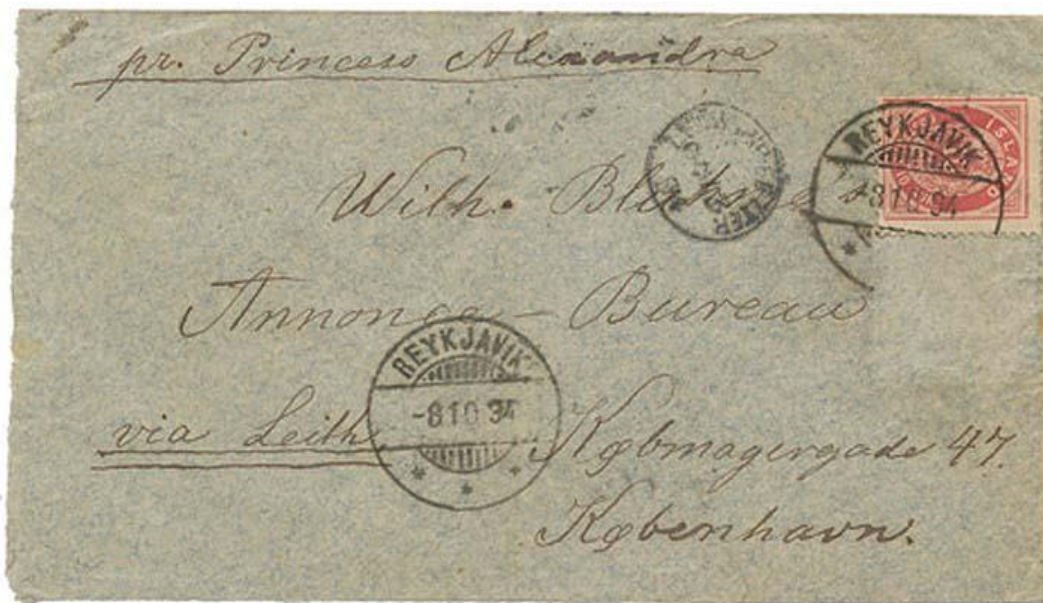 pr. Princess Alexandra
ISLAND
REYKJAVIK
-8 10 94
Wilh.
Annonce-Bureau
REYKJAVIK
-8 10 94
via Leith
Købmagergade 47.
København.